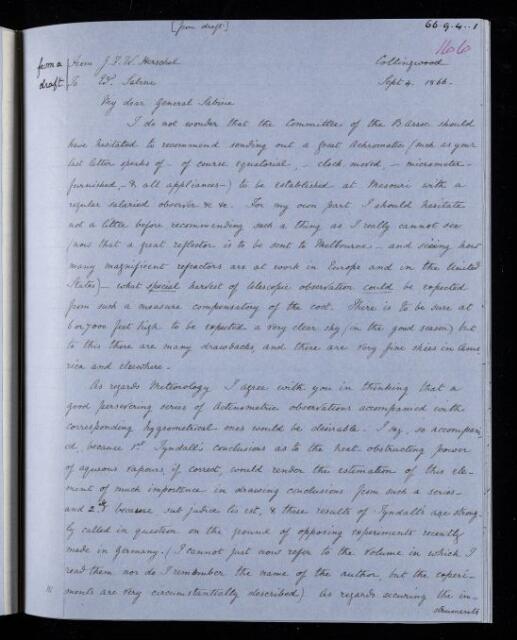 [from draft]
66.9.4..1
166
from a
draft
From J.F.W. Herschel
Collingwood
To Ed. Sabine
Sept 4. 1866.
My dear General Sabine
I do not wonder that the Committee of the B Assoc should
have hesitated to recommend sending out a great Achromatic (such as your
last letter speaks of - of course equatorial, - clock moved, - micrometer-
furnished, - & all appliances -) to be established at Mesouri with a
regular salaried observer &c &c. For my own part I should hesitate
not a little before recommending such a thing as I really cannot see
(now that a great reflector is to be sent to Melbourne - and seeing how
many magnificent refractors are at work in Europe and in the United
States) - what special harvest of telescopic observation could be expected
from such a measure compensatory of the cost. There is to be sure at
6 or 7000 feet high to be expected a very clear sky (in the good season) but
to this there are many drawbacks, and there are very fine skies in Ame-
rica and elsewhere.
As regards Meteorology I agree with you in thinking that a
good persevering series of Actinometric observations accompanied with
corresponding hygrometrical ones would be desirable. I say, so accompani-
ed, because 1st Tyndall's conclusions as to the heat obstructing power
of aqueous vapour, if correct, would render the estimation of this ele-
ment of much importance in drawing conclusions from such a series -
and 2d because, sub judice lis est, & these results of Tyndall's are strong-
ly called in question on the ground of opposing experiments recently
made in Germany. (I cannot just now refer to the volume in which I
read them nor do I remember the name of the author, but the experi-
ments are very circumstantially described) As regards securing the in-
struments